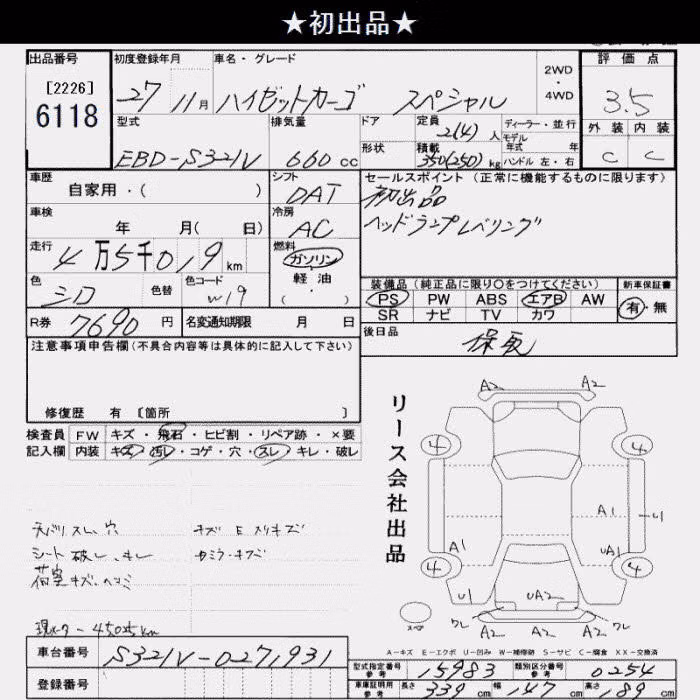 ★初出品★
出品番号 初度登録年月 車名・グレード 2WD・4WD 評価点
[2226]
6118 27 11月 ハイゼットカーゴ スペシャル 3.5
型式 排気量 ドア 定員 2(4)人 ディーラー・並行 外装 内装
モデル年式 年
EBD-S321V 660cc 形状 積載 350(250)kg ハンドル 左・右 C C
車歴 シフト セールスポイント (正常に機能するものに限ります)
自家用・( ) DAT 初出品
車検 冷房 ヘッドランプレベリング
年 月( 日) AC
走行 燃料
4万5千019km ガソリン・軽油・( )
色 色替 色コード 装備品 (純正品に限り○をつけてください) 新車保証書
シロ W19 PS PW ABS エアB AW 有・無
SR ナビ TV カワ
R券 7690円 名変通知期限 月 日 後日品
注意事項申告欄(不具合内容等は具体的に記入して下さい) 保取
修復歴 有 [箇所 ]
検査員 FW キズ・飛石・ヒビ割・リペア跡・×要
記入欄 内装 キズ・汚レ・コゲ・穴・スレ・キレ・破レ
リース会社出品
A2 A2
4 4
A1 A1
UA1
4 4
U1 UA2
ワレ A2 A2 A2 ワレ
スペア
天バリスレ、穴 キズ E スリキズ
シート破レ、キレ
荷室キズ・ヘコミ
現メーター 45025km
A-キズ E-エクボ U-凹み W-補修跡 S-サビ C-腐食 XX-交換済
車台番号 S321V-0271931 型式指定番号 参考 15983 類別区分番号 参考 0254
登録番号 車庫証明用 参考 長さ 339cm 幅 147cm 高さ 189cm